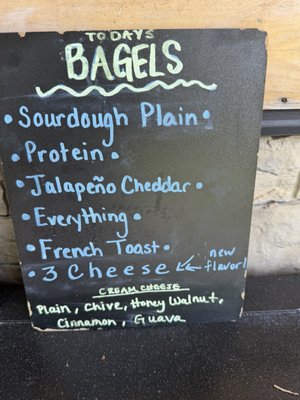 TODAYS
BAGELS
• Sourdough Plain •
• Protein •
• Jalapeño Cheddar •
• Everything •
• French Toast •
• 3 Cheese ← new flavor!
CREAM CHEESE
Plain, Chive, Honey Walnut,
Cinnamon, Guava